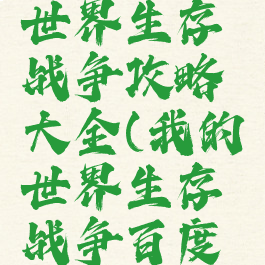 世界生存
战争攻略
大全(我的
世界生存
战争百度